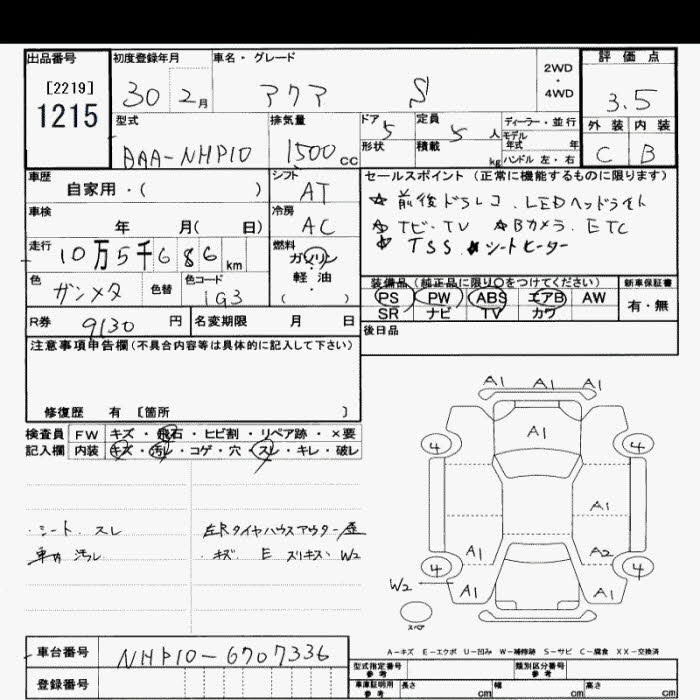 出品番号 初度登録年月 車名・グレード 2WD ・ 4WD 評価点
[2219]
1215 30 2月 アクア S 3.5
型式 排気量 ドア 5 定員 5人 ディーラー・並行 外装 内装
BAA-NHP10 1500cc 形状 積載 kg モデル年式 年 ハンドル 左・右 C B
車歴 シフト セールスポイント(正常に機能するものに限ります)
自家用・( ) AT ☆前後ドラレコ.LEDヘッドライト
車検 冷房 ☆TビTV ☆Bカメラ.ETC
年 月( 日) AC ☆TSS ☆シートヒーター
走行 10万5千686km 燃料 ガソリン
軽・油
・( )
色 ガンメタ 色替 色コード 1G3 装備品(純正品に限り○をつけてください) 新車保証書
PS PW ABS エアB AW 有・無
R券 9130円 名変期限 月 日 SR ナビ TV カワ
注意事項申告欄(不具合内容等は具体的に記入して下さい) 後日品
修復歴 有 〔箇所 〕
検査員 FW キズ・飛石・ヒビ割・リペア跡・×要
記入欄 内装 キズ・汚レ・コゲ・穴・スレ・キレ・破レ
A1 A1 A1
A1
4 4
A1
A1 A2
4 4
A1 A1
W2
スペア
・シート.スレ 左Rタイヤハウスアウター歪
車内汚レ ・キズ E スリキズ W2
A-キズ E-エクボ U-凹み W-補修跡 S-サビ C-腐食 XX-交換済
車台番号 NHP10-6707336
型式指定番号 参考 類別区分番号 参考
登録番号 車庫証明用 参考 長さ cm 幅 cm 高さ cm